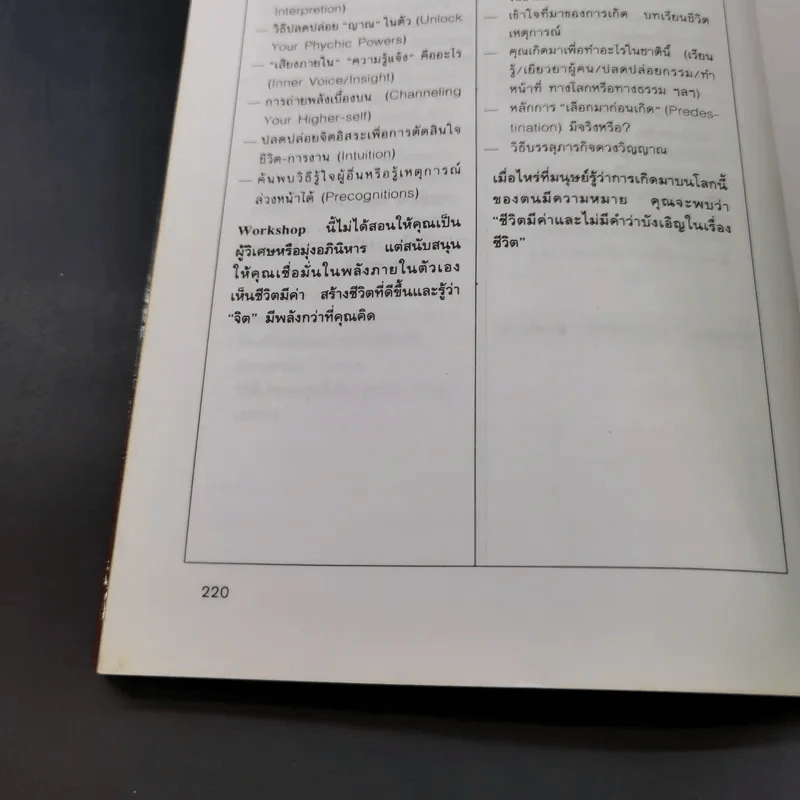 Interpretion)
— วิธีปลดปล่อย “ญาณ” ในตัว (Unlock
Your Phychic Powers)
— “เสียงภายใน” “ความรู้แจ้ง” คืออะไร
(Inner Voice/Insight)
— การถ่ายพลังเบื้องบน (Channeling
Your Higher-self)
— ปลดปล่อยจิตอิสระเพื่อการตัดสินใจ
ชีวิต-การงาน (Intuition)
— ค้นพบวิธีรู้ใจผู้อื่นหรือรู้เหตุการณ์
ล่วงหน้าได้ (Precognitions)
Workshop นี้ไม่ได้สอนให้คุณเป็น
ผู้วิเศษหรือมุ่งอภินิหาร แต่สนับสนุน
ให้คุณเชื่อมั่นในพลังภายในตัวเอง
เห็นชีวิตมีค่า สร้างชีวิตที่ดีขึ้นและรู้ว่า
“จิต” มีพลังกว่าที่คุณคิด
— เข้าใจที่มาของการเกิด บทเรียนชีวิต
เหตุการณ์
— คุณเกิดมาเพื่อทำอะไรในชาตินี้ (เรียน
รู้/เยียวยาผู้คน/ปลดปล่อยกรรม/ทำ
หน้าที่ ทางโลกหรือทางธรรม ฯลฯ)
— หลักการ “เลือกมาก่อนเกิด” (Predes-
tination) มีจริงหรือ?
— วิธีบรรลุภารกิจดวงวิญญาณ
เมื่อไหร่ที่มนุษย์รู้ว่าการเกิดมาบนโลกนี้
ของตนมีความหมาย คุณจะพบว่า
“ชีวิตมีค่าและไม่มีคำว่าบังเอิญในเรื่อง
ชีวิต”
220